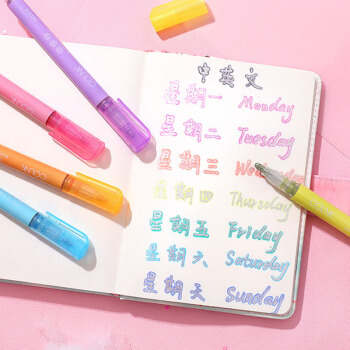 中英文
星期一 Monday
星期二 Tuesday
星期三 Wednesday
星期四 Thursday
星期五 Friday
星期六 Saturday
星期天 Sunday